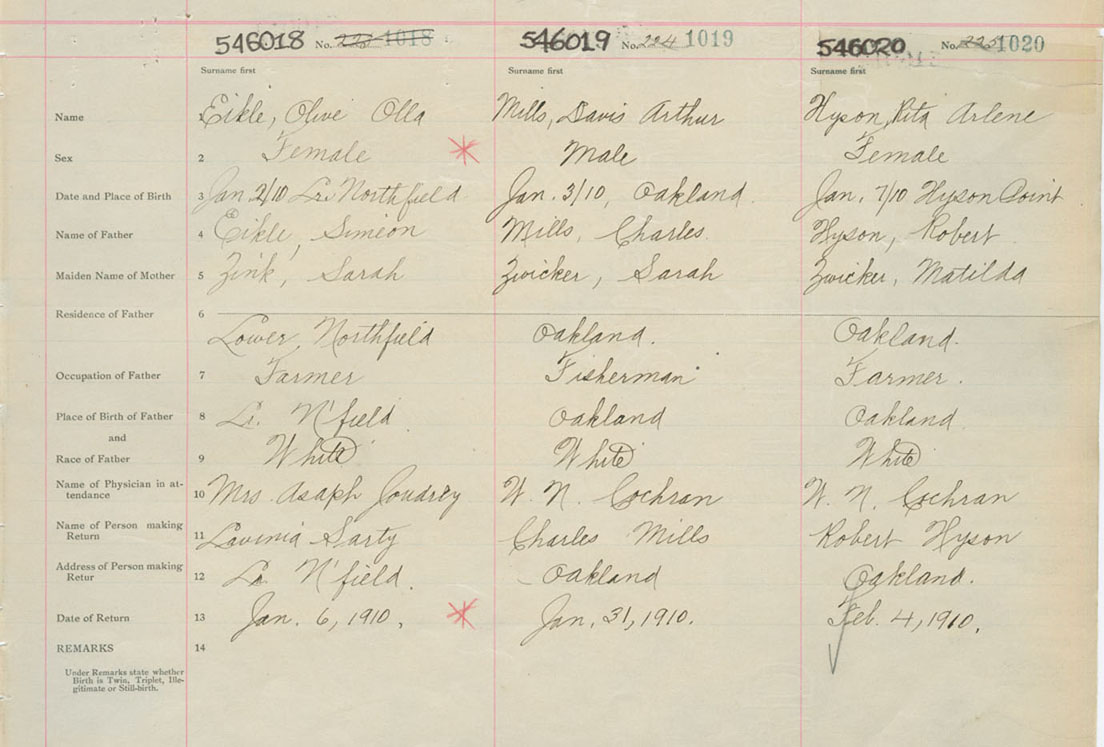 546018 No. 223 1018 546019 No. 224 1019 546020 No. 225 1020
Surname first Surname first Surname first
Name 1 Eikle, Olive Olla Mills, Davis Arthur Hyson, Rita Arlene
Sex 2 Female Male Female
Date and Place of Birth 3 Jan 2/10 Lr. Northfield Jan. 3/10, Oakland. Jan. 7/10 Hyson Point
Name of Father 4 Eikle, Simeon Mills, Charles. Hyson, Robert
Maiden Name of Mother 5 Zink, Sarah Zwicker, Sarah Zwicker, Matilda
Residence of Father 6
Lower Northfield Oakland. Oakland.
Occupation of Father 7 Farmer Fisherman Farmer.
Place of Birth of Father 8 Lr. N'field Oakland Oakland.
and
Race of Father 9 White White White
Name of Physician in at-
tendance 10 Mrs. Asaph Joudrey W. N. Cochran W. N. Cochran
Name of Person making
Return 11 Lavinia Sarty Charles Mills Robert Hyson
Address of Person making
Retur 12 Lr. N'field. Oakland Oakland.
Date of Return 13 Jan. 6, 1910, Jan. 31, 1910. Feb. 4, 1910.
REMARKS 14
Under Remarks state whether
Birth is Twin, Triplet, Ille-
gitimate or Still-birth.